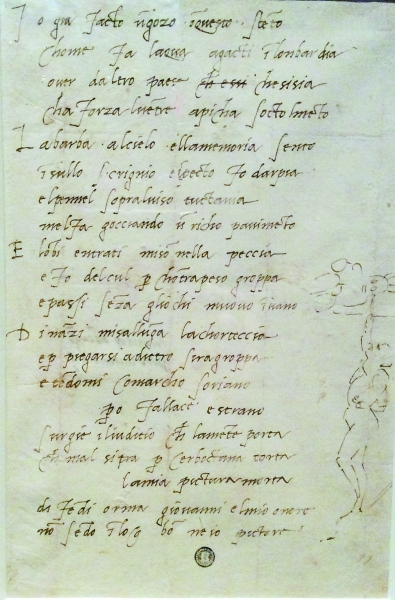 I o gia facto ũ gozo ĩ questo stẽto
chome fa laqua agacti ĩ lombardia
over daltro paese ch essi che sisia
cha forza luẽtre apicha socto lmẽto
L abarba alcielo ellamemoria sento
ĩ sullo scrignio elpecto fo darpia
elpennel sopraluiso tuctauia
melfa gocciando ũ richo pauimẽto
E lõbi entrati misõ nella peccia
e fo delcul p chõtrapeso groppa
e passi sẽza gliochi muouo ĩuano
D inãzi misallũga lachorteccia
e p piegarsi adietro siragroppa
e tẽdomi comarcho soriano
po fallace e strano
surgie iliuditio ch lamẽte porta
ch mal sitra p cerboctana torta
lamia pictura morta
difẽdi orma giouanni elmio onore
nõ sẽdo ĩ log bõ ne io pictore